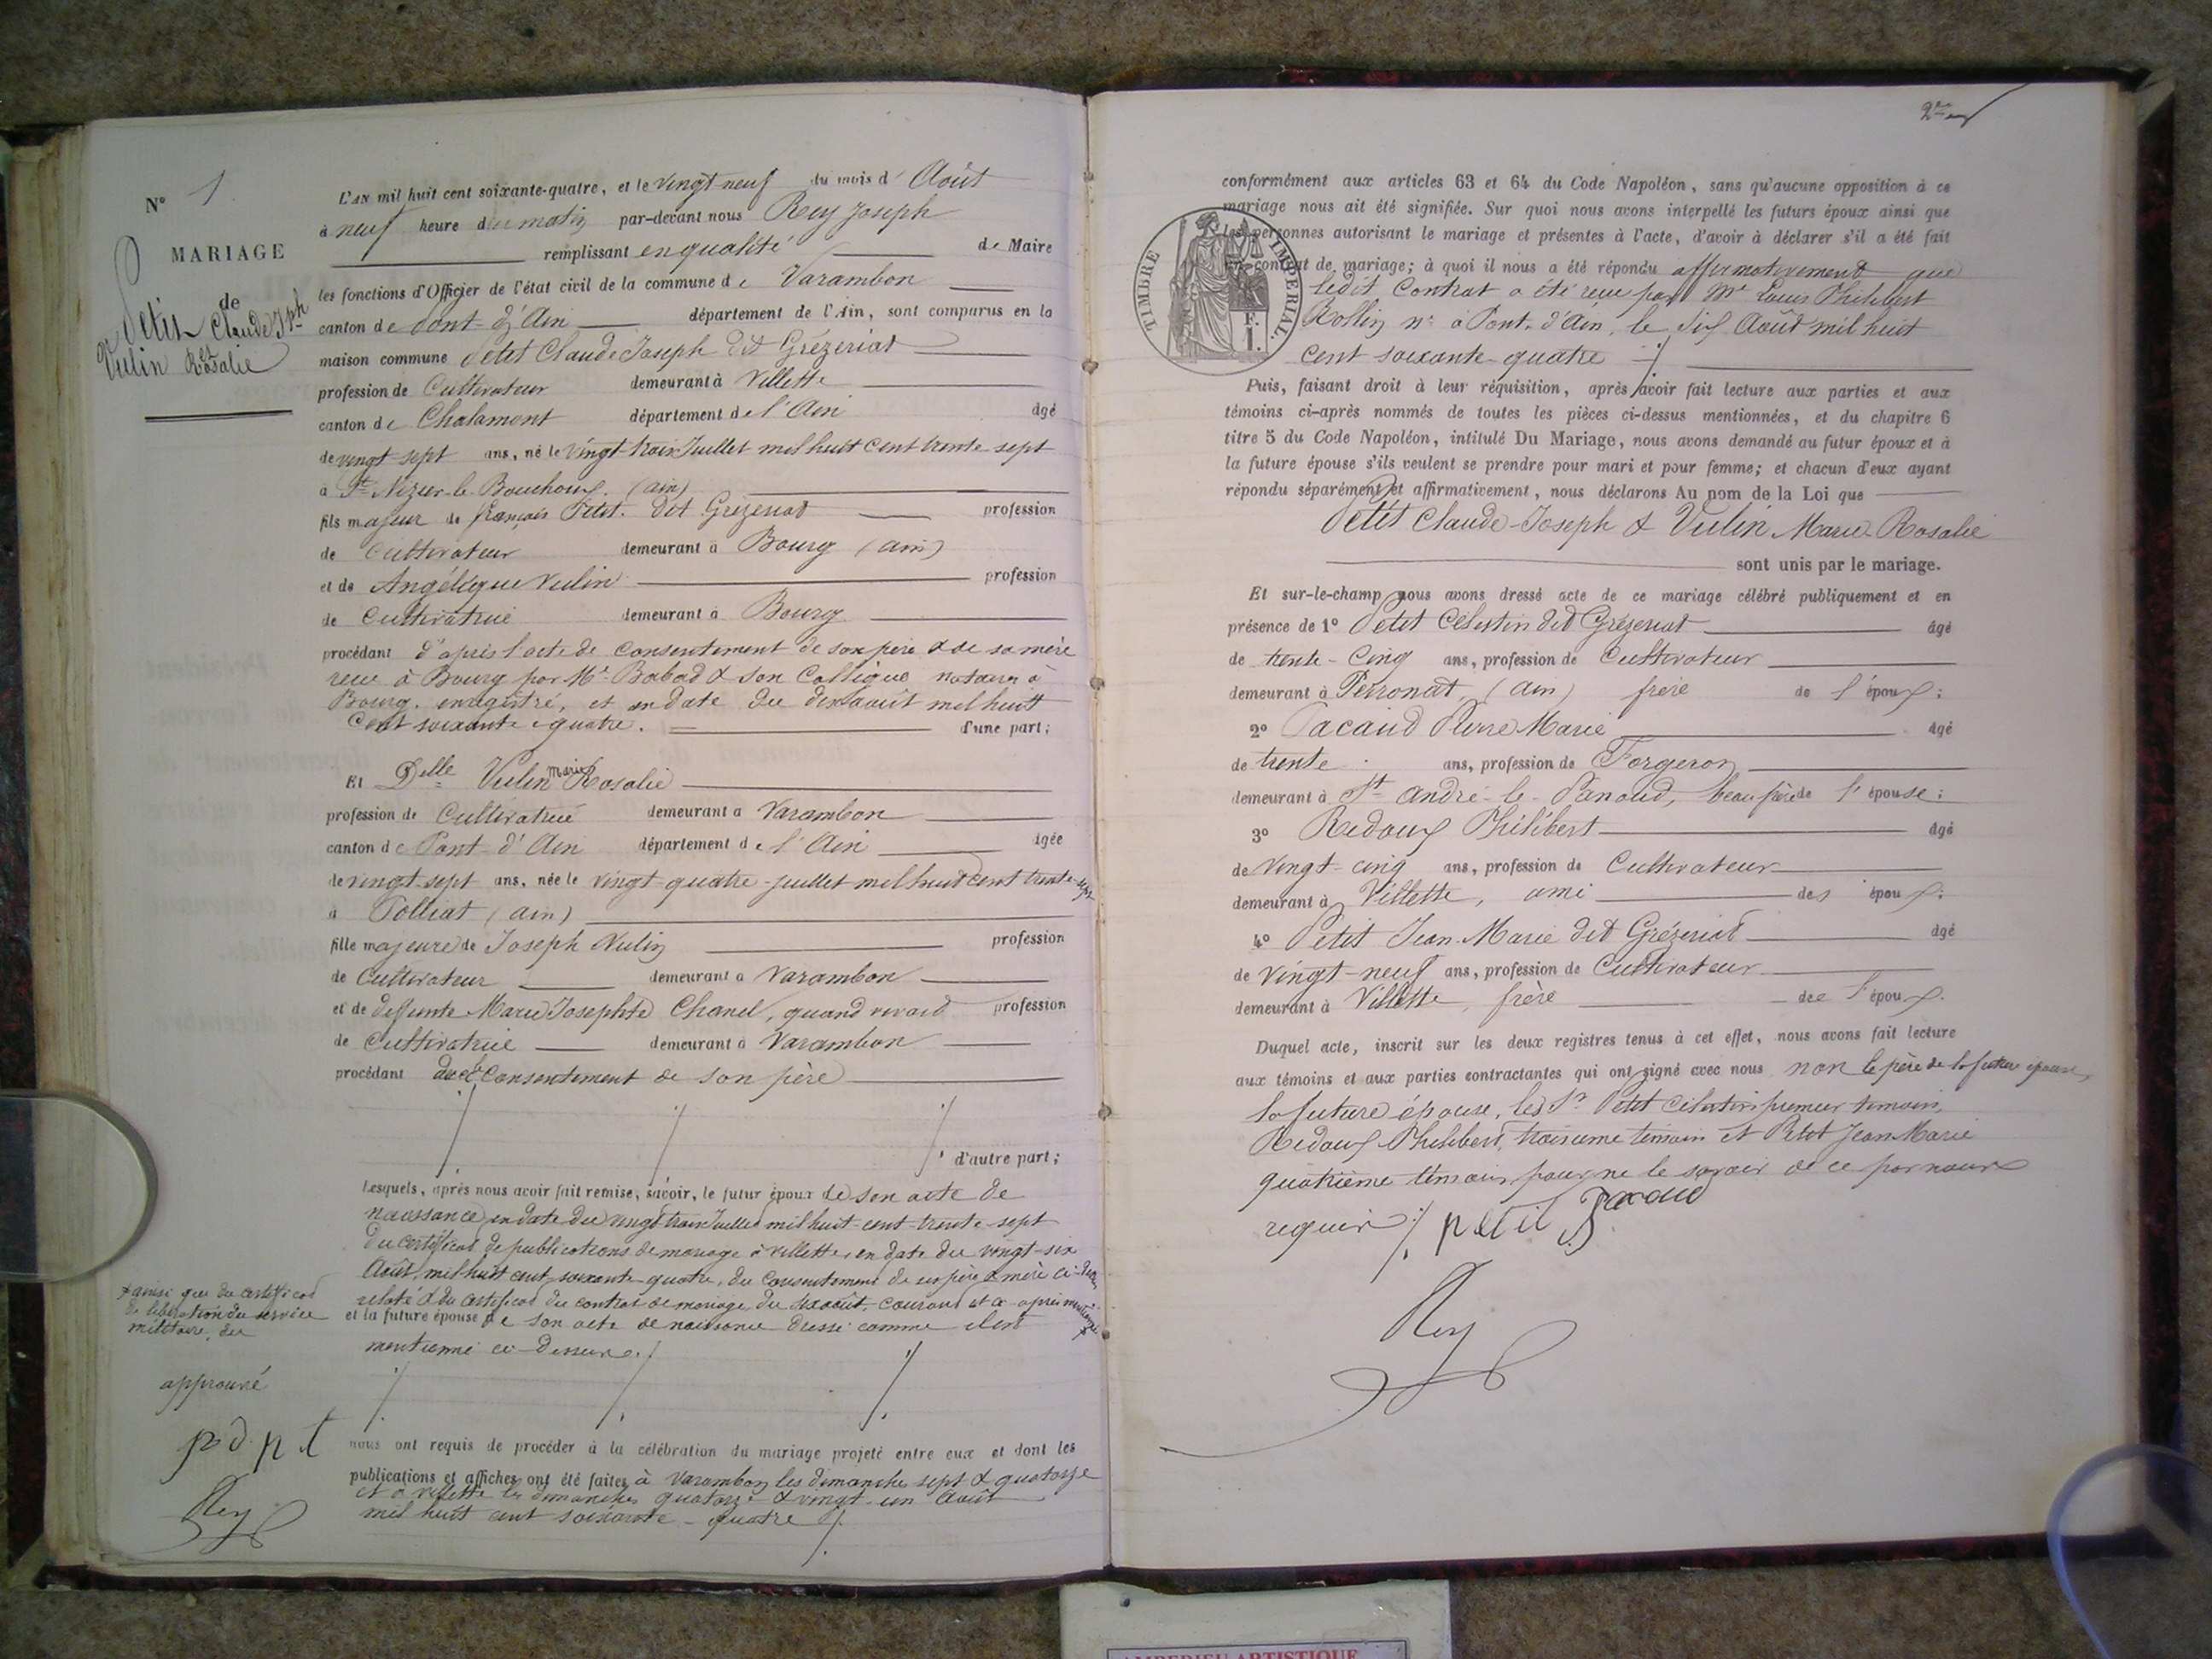 N° 1
MARIAGE
de
Petit Claude Jph
et
Vulin Rosalie
L'AN mil huit cent soixante-quatre, et le vingt neuf du mois d' Août
à neuf heure du matin par-devant nous Rey Joseph
remplissant en qualité de Maire
les fonctions d'Officier de l'état civil de la commune de Varambon
canton de Pont-d'Ain département de l'Ain, sont comparus en la
maison commune Petit Claude Joseph dit Grézeriat
profession de Cultivateur demeurant à Villette
canton de Chalamont département de l'Ain âgé
de vingt sept ans, né le vingt trois Juillet mil huit cent trente sept
à St Nizier-le-Bouchoux (ain)
fils majeur de françois Petit dit Grézeriat profession
de Cultivateur demeurant à Bourg (ain)
et de Angélique Vulin profession
de Cultivatrice demeurant à Bourg
procédant d'après l'acte de consentement de son père & de sa mère
reçu à Bourg par Mr Babad & son Collègue notaires à
Bourg, enregistré, et en date du dix août mil huit
Cent soixante-quatre. d'une part;
Et Delle Vulin Marie Rosalie
profession de Cultivatrice demeurant à Varambon
canton de Pont-d'Ain département de l'Ain âgée
de vingt-sept ans, née le vingt-quatre juillet mil huit cent trente-sept
à Polliat (ain)
fille majeure de Joseph Vulin profession
de Cultivateur demeurant à Varambon
et de deffunte Marie Josephte Chanel, quand vivait profession
de Cultivatrice demeurant à Varambon
procédant du consentement de son père
d'autre part;
Lesquels, après nous avoir fait remise, savoir, le futur époux de son acte de
naissance en date du vingt trois Juillet mil huit cent trente-sept
du certificat de publications de mariage à villette, en date du vingt-six
Août mil huit cent soixante-quatre, du Consentement de ses père & mère ci-dessus
relaté & du certificat du contrat de mariage du dix août courant et ci-après mentionné
et la future épouse de son acte de naissance dressé comme il est
mentionné ci-dessus.
+ ainsi que du certificat
de libération du service
militaire, du
approuvé
p d p t
Rey
nous ont requis de procéder à la célébration du mariage projeté entre eux et dont les
publications et affiches ont été faites à Varambon les dimanches sept & quatorze
et à villette les dimanches quatorze & vingt-un Août
mil huit cent soixante-quatre
2me
conformément aux articles 63 et 64 du Code Napoléon, sans qu'aucune opposition à ce
mariage nous ait été signifiée. Sur quoi nous avons interpellé les futurs époux ainsi que
les personnes autorisant le mariage et présentes à l'acte, d'avoir à déclarer s'il a été fait
un contrat de mariage; à quoi il nous a été répondu affirmativement que
ledit Contrat a été reçu par Mr Louis Philibert
Rollin nre à Pont-d'Ain, le dix Août mil huit
cent soixante-quatre
TIMBRE IMPÉRIAL
F.
1.
Puis, faisant droit à leur réquisition, après avoir fait lecture aux parties et aux
témoins ci-après nommés de toutes les pièces ci-dessus mentionnées, et du chapitre 6
titre 5 du Code Napoléon, intitulé Du Mariage, nous avons demandé au futur époux et à
la future épouse s'ils veulent se prendre pour mari et pour femme; et chacun d'eux ayant
répondu séparément et affirmativement, nous déclarons Au nom de la Loi que
Petit Claude-Joseph & Vulin Marie Rosalie
sont unis par le mariage.
Et sur-le-champ nous avons dressé acte de ce mariage célébré publiquement et en
présence de 1° Petit Célestin dit Grézeriat âgé
de trente-Cinq ans, profession de Cultivateur
demeurant à Perronat, (ain) frère de l'époux;
2° Pacaud Pierre Marie âgé
de trente ans, profession de Forgeron
demeurant à St andré-le-Panoud, beau frère de l'épouse;
3° Redoux Philibert âgé
de Vingt-cinq ans, profession de Cultivateur
demeurant à Villette, ami des époux;
4° Petit Jean-Marie dit Grézeriat âgé
de Vingt-neuf ans, profession de Cultivateur
demeurant à Villette, frère de l'époux.
Duquel acte, inscrit sur les deux registres tenus à cet effet, nous avons fait lecture
aux témoins et aux parties contractantes qui ont signé avec nous non le père de la future épouse,
la future épouse, les Sr Petit Célestin premier témoin,
Redoux Philibert, troisième témoin et Petit Jean Marie
quatrième témoin pour ne le savoir de ce par nous
requis
petit Pacaud
Rey
AMBERIEU ARTISTIQUE